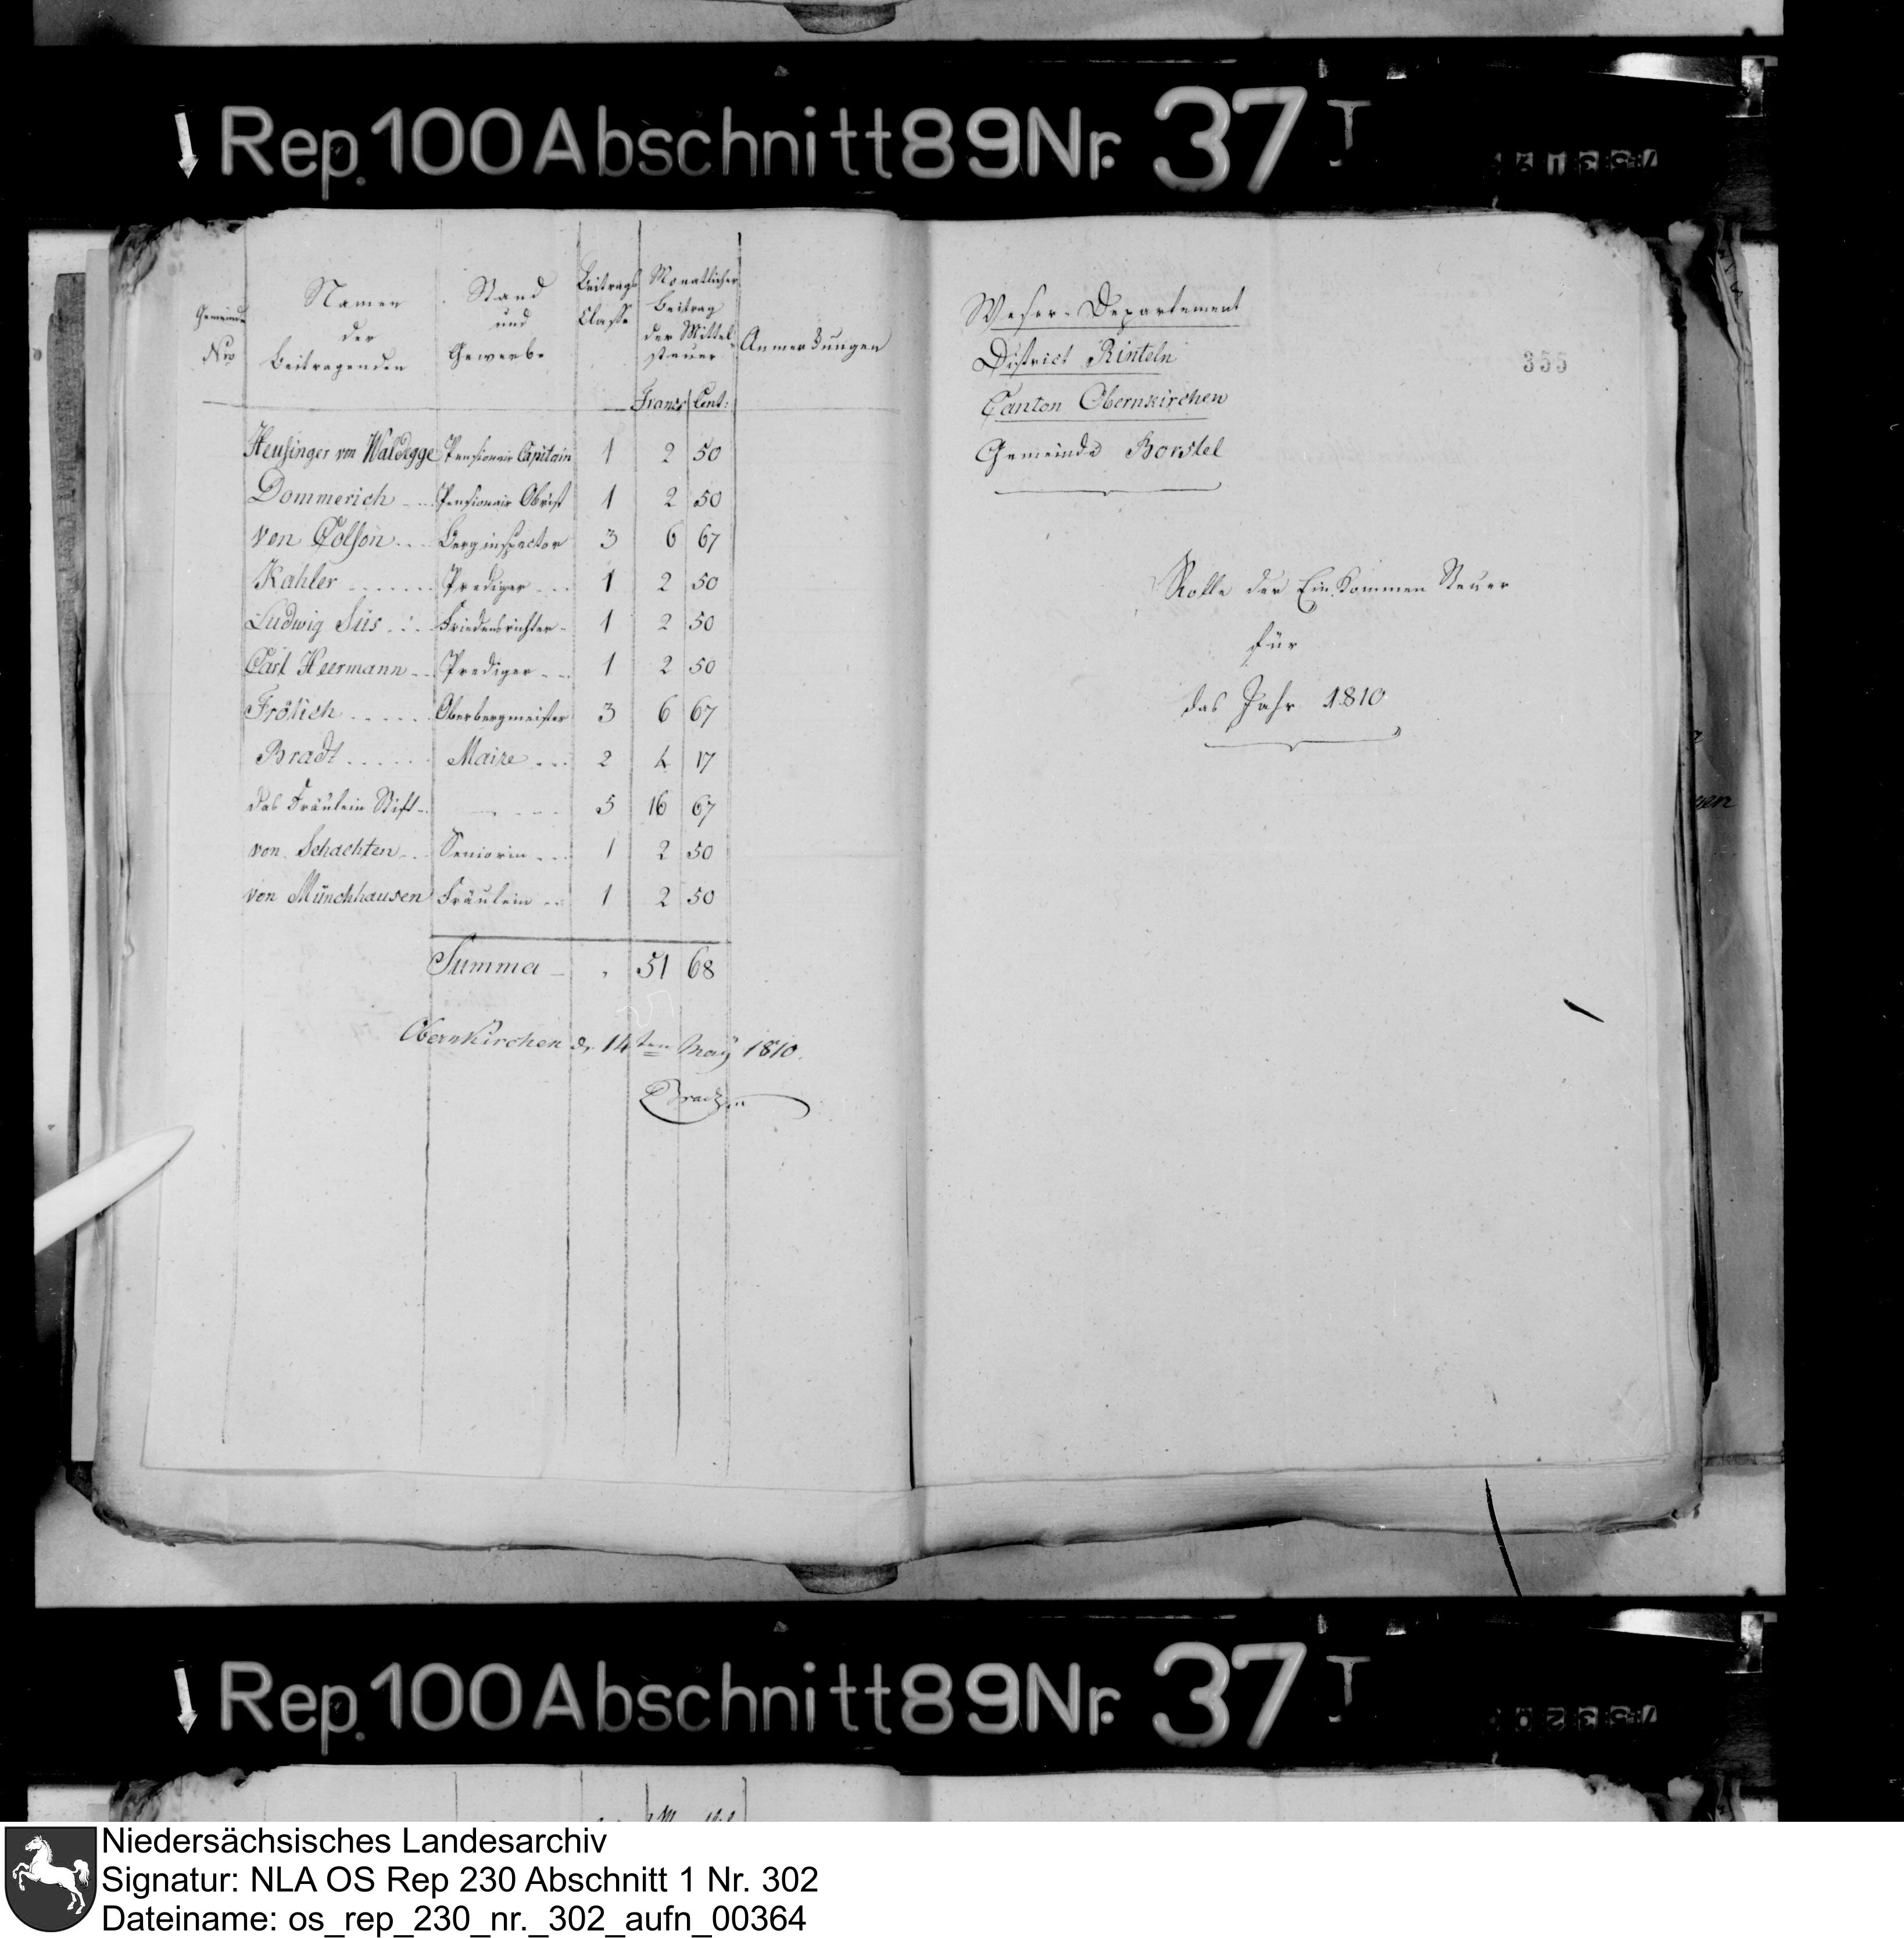 Rep. 100 Abschnitt 89 Nr. 37 I
Gemeinde Nro
Namen der Beitragenden
Stand und Gewerbe
Beitrags Classe
Monatlicher Beitrag der Mittel steuer
Francs Cent:
Anmerkungen
Heusinger von Waldegge Pensionair Capitain 1 2 50
Dommerich Pensionair Obrist 1 2 50
von Colson Berginspector 3 6 67
Kahler Prediger 1 2 50
Ludwig Süs Friedensrichter 1 2 50
Carl Heermann Prediger 1 2 50
Frölich Oberbergmeister 3 6 67
Bradt Maire 2 4 17
das Fräulein Stift 5 16 67
von Schachten Seniorin 1 2 50
von Münchhausen Fräulein 1 2 50
Summa 51 68
Obernkirchen d. 14ten May 1810.
Weser-Departement
District Rinteln
Canton Obernkirchen
Gemeinde Borstel
355
Rolle der Einkommen Steuer
für
das Jahr 1810
Rep. 100 Abschnitt 89 Nr. 37 I
Niedersächsisches Landesarchiv
Signatur: NLA OS Rep 230 Abschnitt 1 Nr. 302
Dateiname: os_rep_230_nr._302_aufn_00364